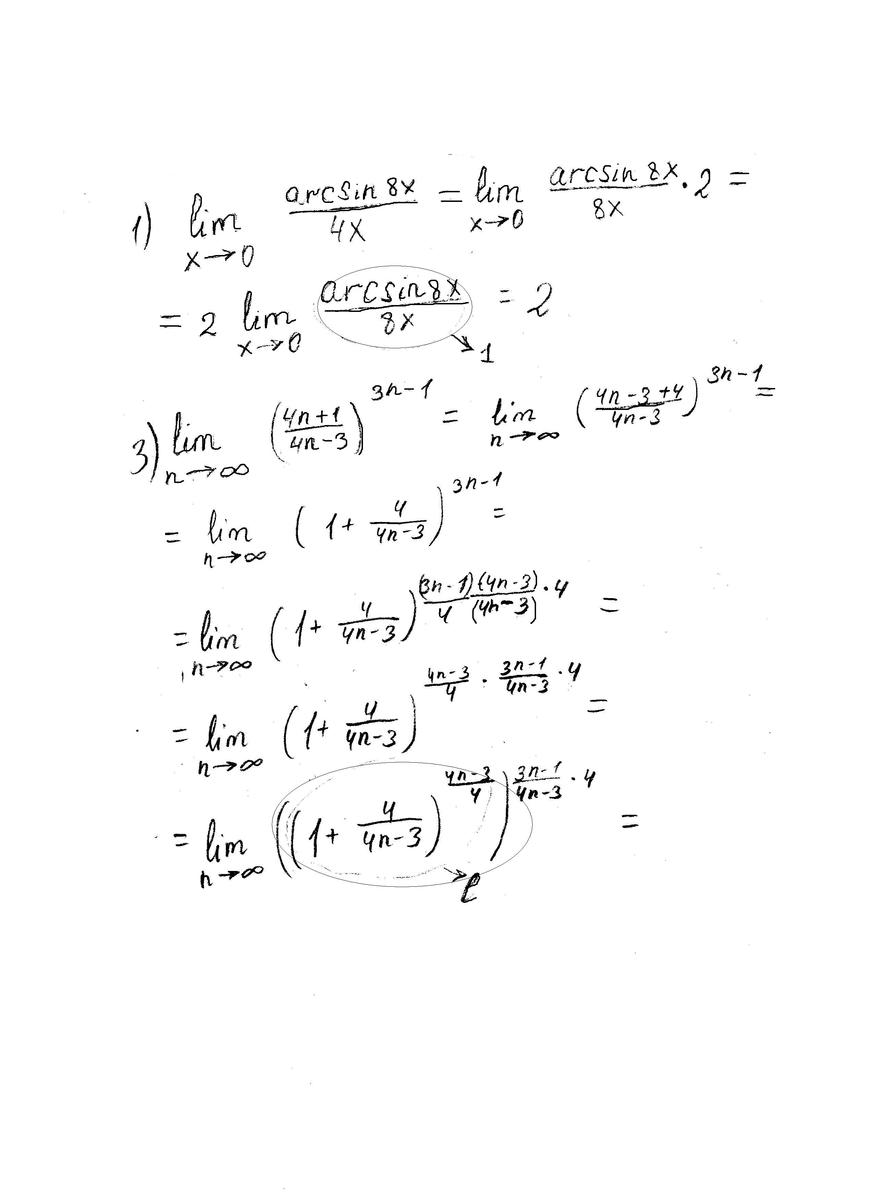 1) lim x→0 arcsin 8x / 4x = lim x→0 arcsin 8x / 8x · 2 =
= 2 lim x→0 arcsin 8x / 8x = 2
→ 1
3) lim n→∞ ((4n+1)/(4n-3))^(3n-1) = lim n→∞ ((4n-3+4)/(4n-3))^(3n-1) =
= lim n→∞ (1 + 4/(4n-3))^(3n-1) =
= lim n→∞ (1 + 4/(4n-3))^((3n-1)/4 (4n-3)/(4n-3) · 4) =
= lim n→∞ (1 + 4/(4n-3))^((4n-3)/4 · (3n-1)/(4n-3) · 4) =
= lim n→∞ ((1 + 4/(4n-3))^((4n-3)/4))^((3n-1)/(4n-3) · 4) =
→ e